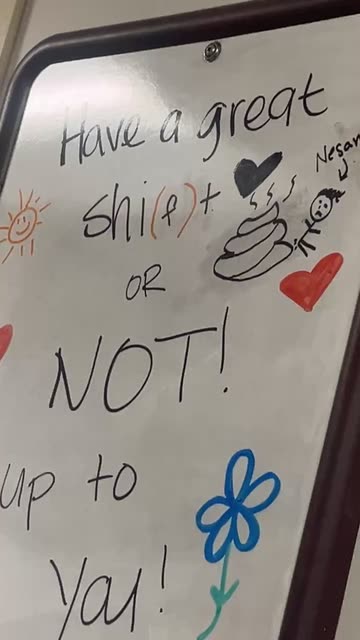 Have a great
shi(f)t
Negar
OR
NOT!
up to
You!